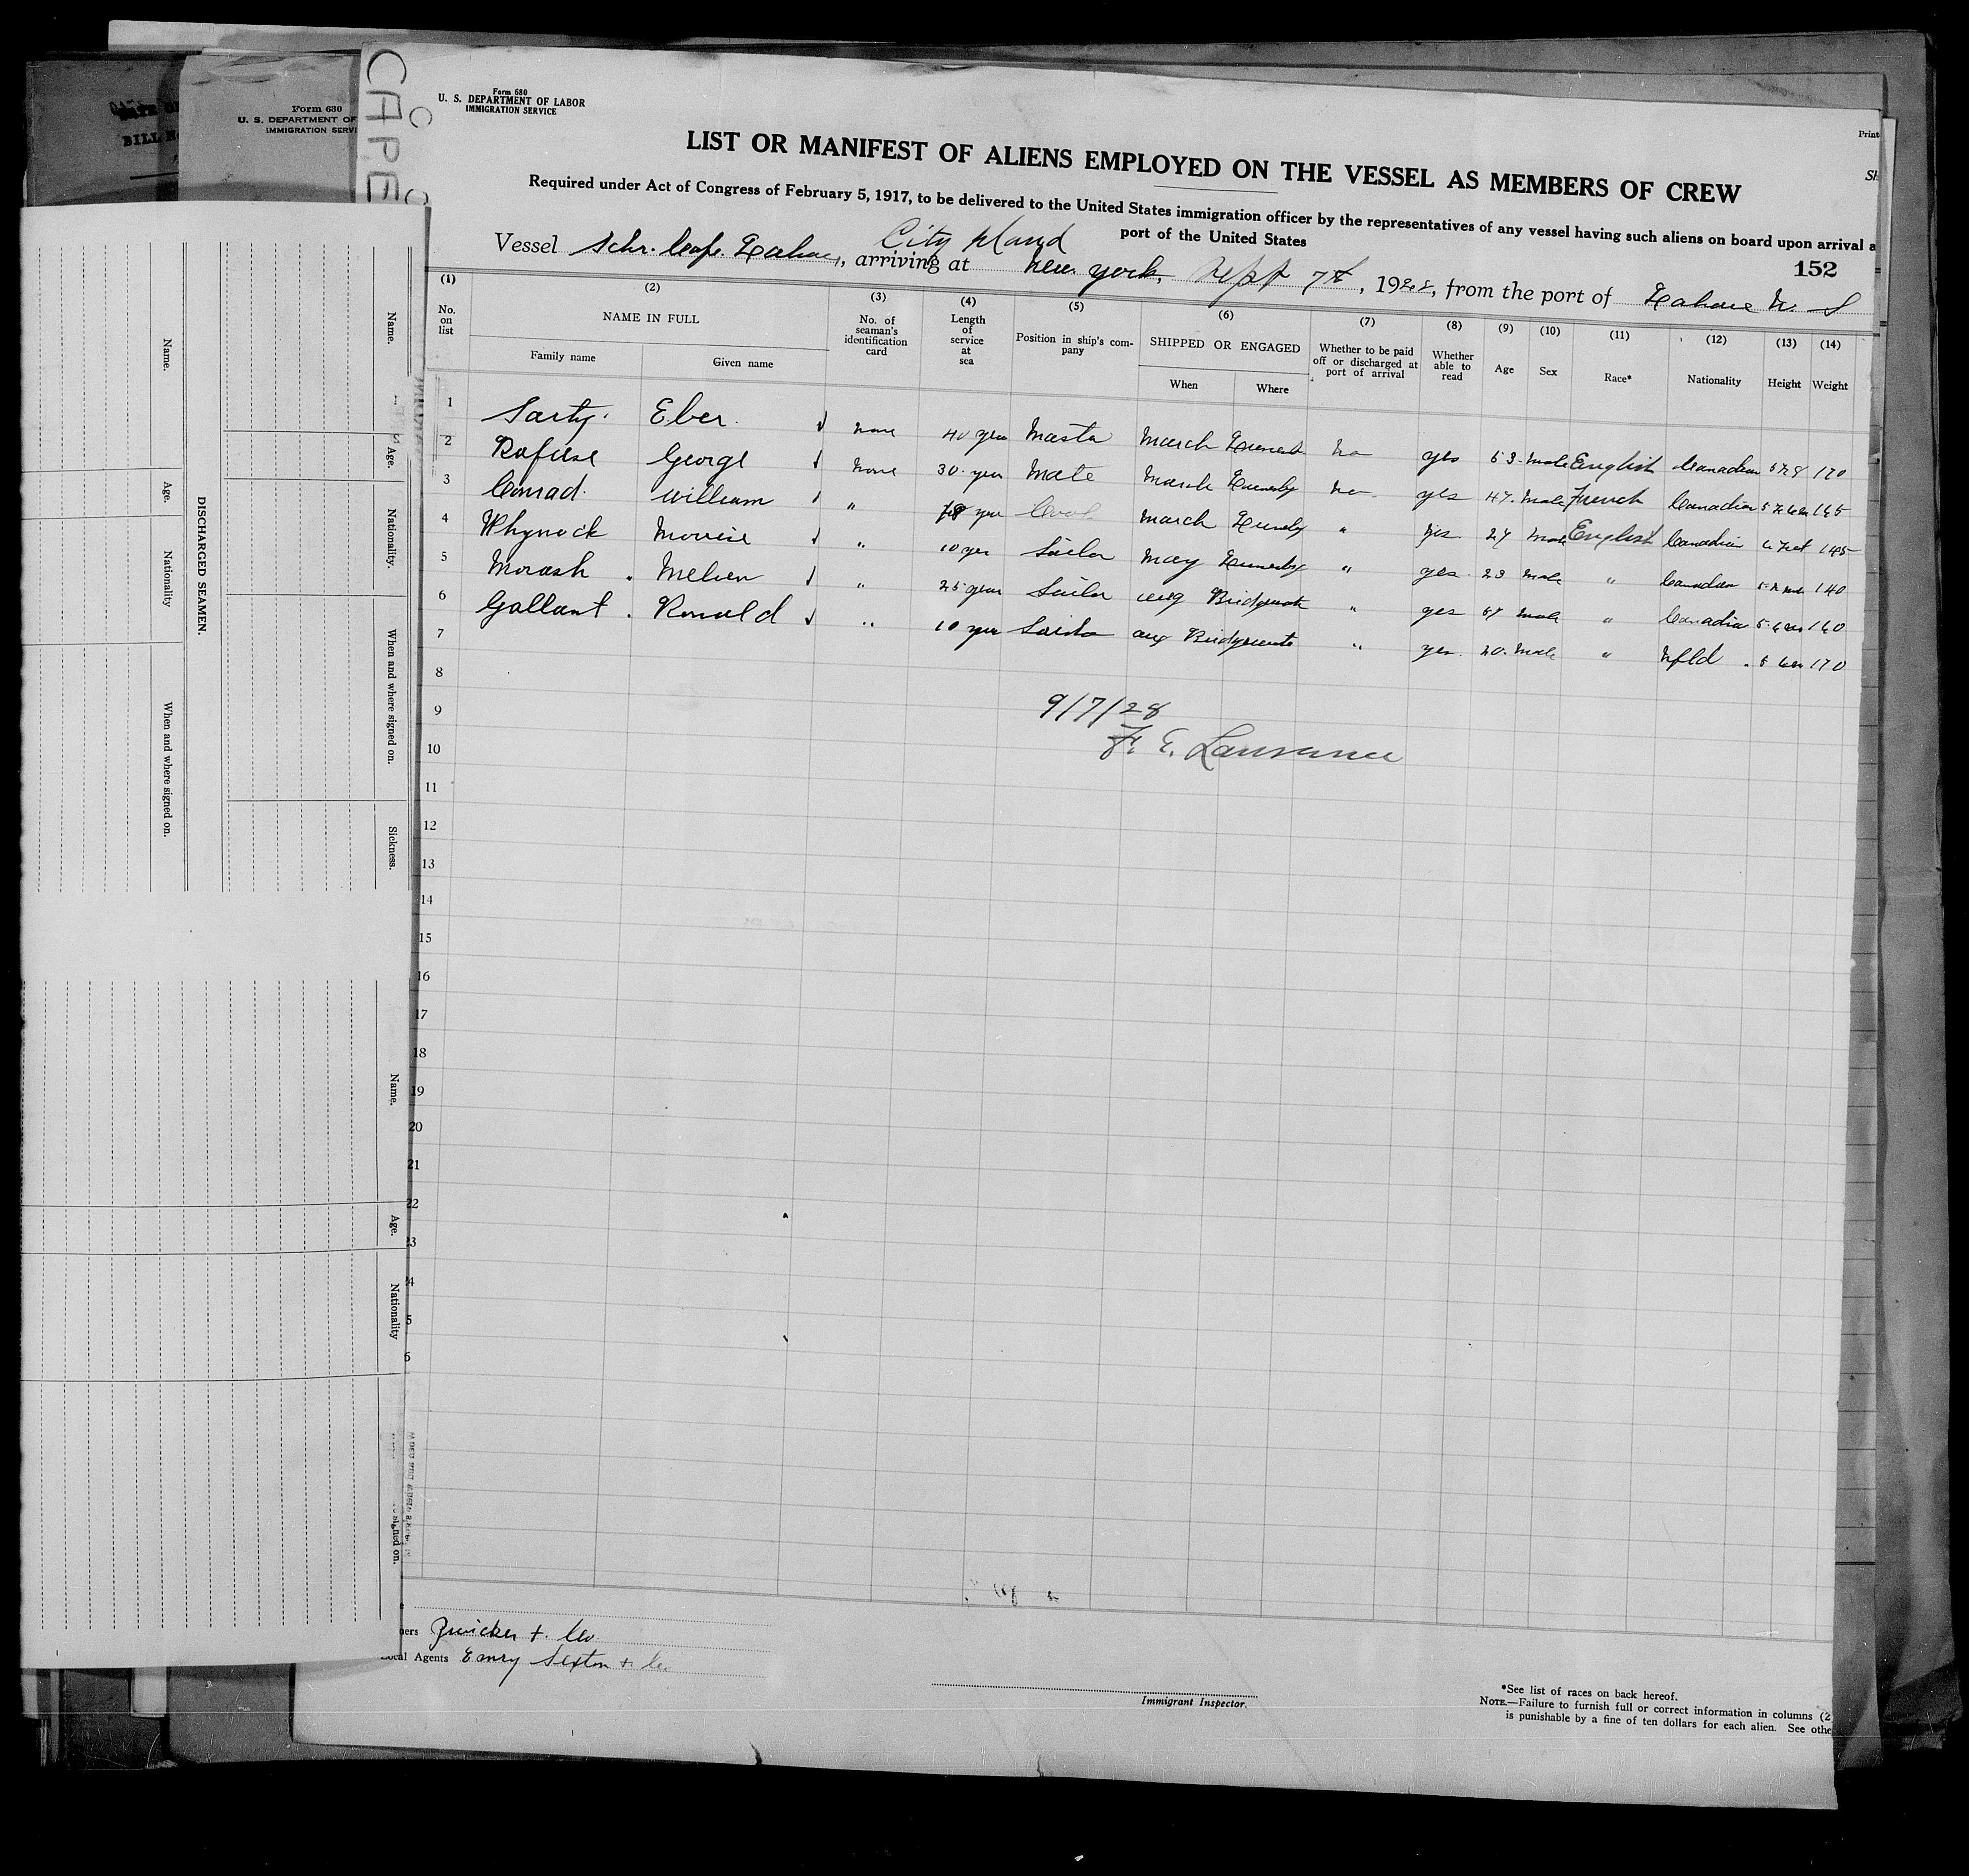 CAPE
Form 630
U. S. DEPARTMENT OF
IMMIGRATION SERVI
Form 680
U. S. DEPARTMENT OF LABOR
IMMIGRATION SERVICE
Print
LIST OR MANIFEST OF ALIENS EMPLOYED ON THE VESSEL AS MEMBERS OF CREW
Sh
Required under Act of Congress of February 5, 1917, to be delivered to the United States immigration officer by the representatives of any vessel having such aliens on board upon arrival a
port of the United States
City Island
Vessel Schr. Cape Lahave, arriving at New York, Sept 7th, 1928, from the port of Lahave N. S
152
(1) (2) (3) (4) (5) (6) (7) (8) (9) (10) (11) (12) (13) (14)
No. on list NAME IN FULL No. of seaman's identification card Length of service at sea Position in ship's company SHIPPED OR ENGAGED Whether to be paid off or discharged at port of arrival Whether able to read Age Sex Race* Nationality Height Weight
Family name Given name When Where
1 Sarty. Eber. none 40 year Master March No yes 53. male English Canadian 5 ft 8 170
2 Rafuse George None 30. year Mate March No yes 47. male French Canadian 165
3 Conrad. William " year Cook March " yes 27 male English Canadian 6 feet 145
4 Whynock " 10 year Sailor May " yes. 23 male " Canadian 140
5 Morash. " 25 year Sailor aug " yes male " Canadian 160
6 Gallant. Ronald " 10 year aug " yes. 20. male " Nfld. 170
7
8
9
10
9/7/28
F. E. Lawrence
11
12
13
14
15
16
17
18
19
20
21
22
23
24
5
6
Name.
Age.
Nationality.
When and where signed on.
Sickness.
DISCHARGED SEAMEN.
Name.
Age.
Nationality
When and where signed on.
Name.
Age.
Nationality
signed on.
ners Zwicker + Co.
Local Agents Emry Sexton + Co.
Immigrant Inspector.
*See list of races on back hereof.
NOTE.—Failure to furnish full or correct information in columns (2
is punishable by a fine of ten dollars for each alien. See othe